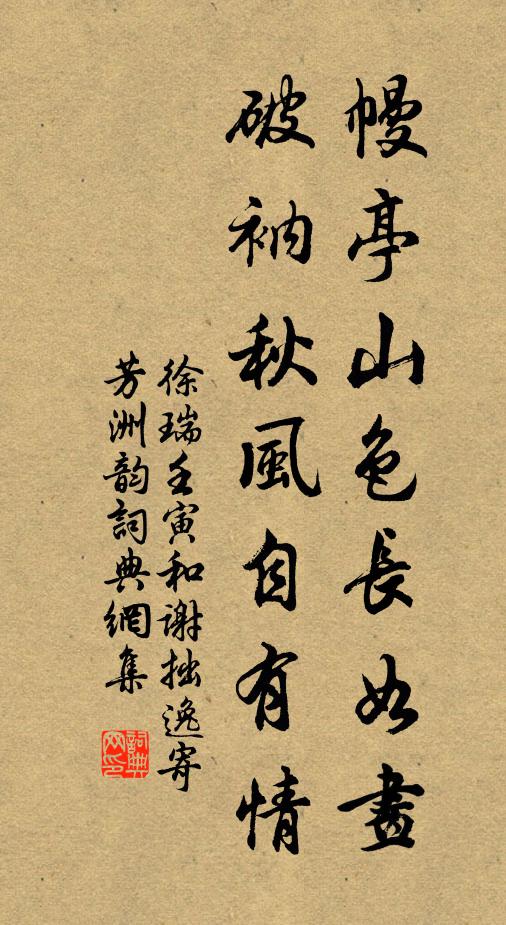 幔亭山色長如畫
破衲秋風自有情
徐瑞壬寅和謝拙逸寄
芳洲韵詞典網集
詞典網印